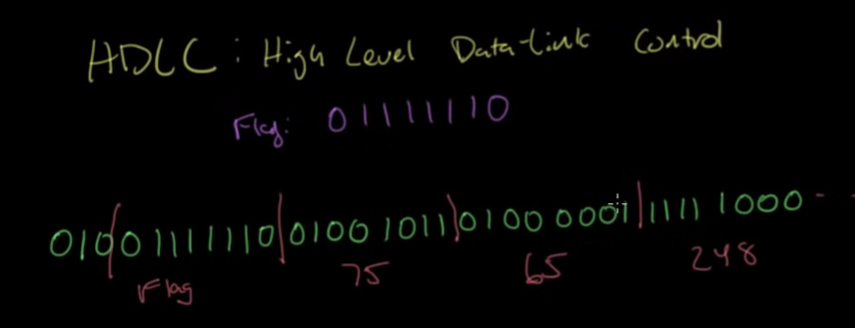 HDLC: High Level Data-Link Control
Flag: 01111110
010|01111110|01001011|01000001|11111000 - -
Flag 75 65 248